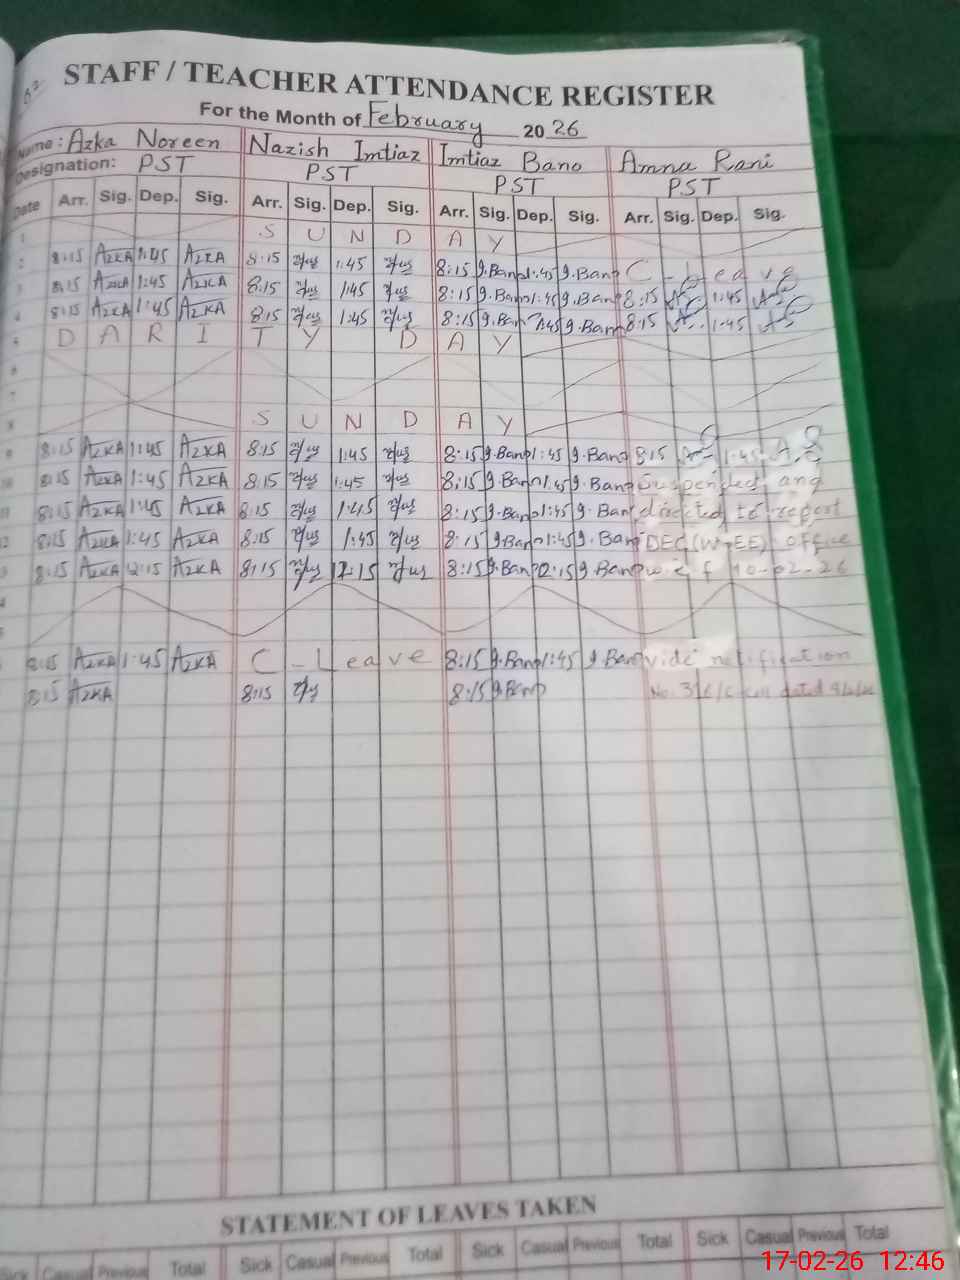 STAFF / TEACHER ATTENDANCE REGISTER
For the Month of February 2026
Name: Azka Noreen Nazish Imtiaz Imtiaz Bano Amna Rani
Designation: PST PST PST PST
Date Arr. Sig. Dep. Sig. Arr. Sig. Dep. Sig. Arr. Sig. Dep. Sig. Arr. Sig. Dep. Sig.
1 S U N D A Y
2 8:15 AZKA 1:45 AZKA 8:15 1:45 8:15 g.Bano 1:45 g.Bano C-Leave
3 8:15 AZKA 1:45 AZKA 8:15 1:45 8:15 g.Bano 1:45 g.Bano 8:15 1:45
4 8:15 AZKA 1:45 AZKA 8:15 1:45 8:15 g.Bano 1:45 g.Bano 8:15 1:45
5 D A R I T Y D A Y
6
7
8 S U N D A Y
9 8:15 AZKA 1:45 AZKA 8:15 1:45 8:15 g.Bano 1:45 g.Bano 8:15 1:45
10 8:15 AZKA 1:45 AZKA 8:15 1:45 8:15 g.Bano 1:45 g.Bano Suspended and
11 8:15 AZKA 1:45 AZKA 8:15 1:45 8:15 g.Bano 1:45 g.Bano directed to report
12 8:15 AZKA 1:45 AZKA 8:15 1:45 8:15 g.Bano 1:45 g.Bano DEO (W-EE) office
8:15 AZKA 12:15 AZKA 8:15 12:15 8:15 g.Bano 12:15 g.Bano w.e.f 10-02-26
8:15 AZKA 1:45 AZKA C-Leave 8:15 g.Bano 1:45 g.Bano vide notification
8:15 AZKA 8:15 8:15 g.Bano No. dated
STATEMENT OF LEAVES TAKEN
Sick Casual Previous Total Sick Casual Previous Total Sick Casual Previous Total Sick Casual Previous Total
17-02-26 12:46